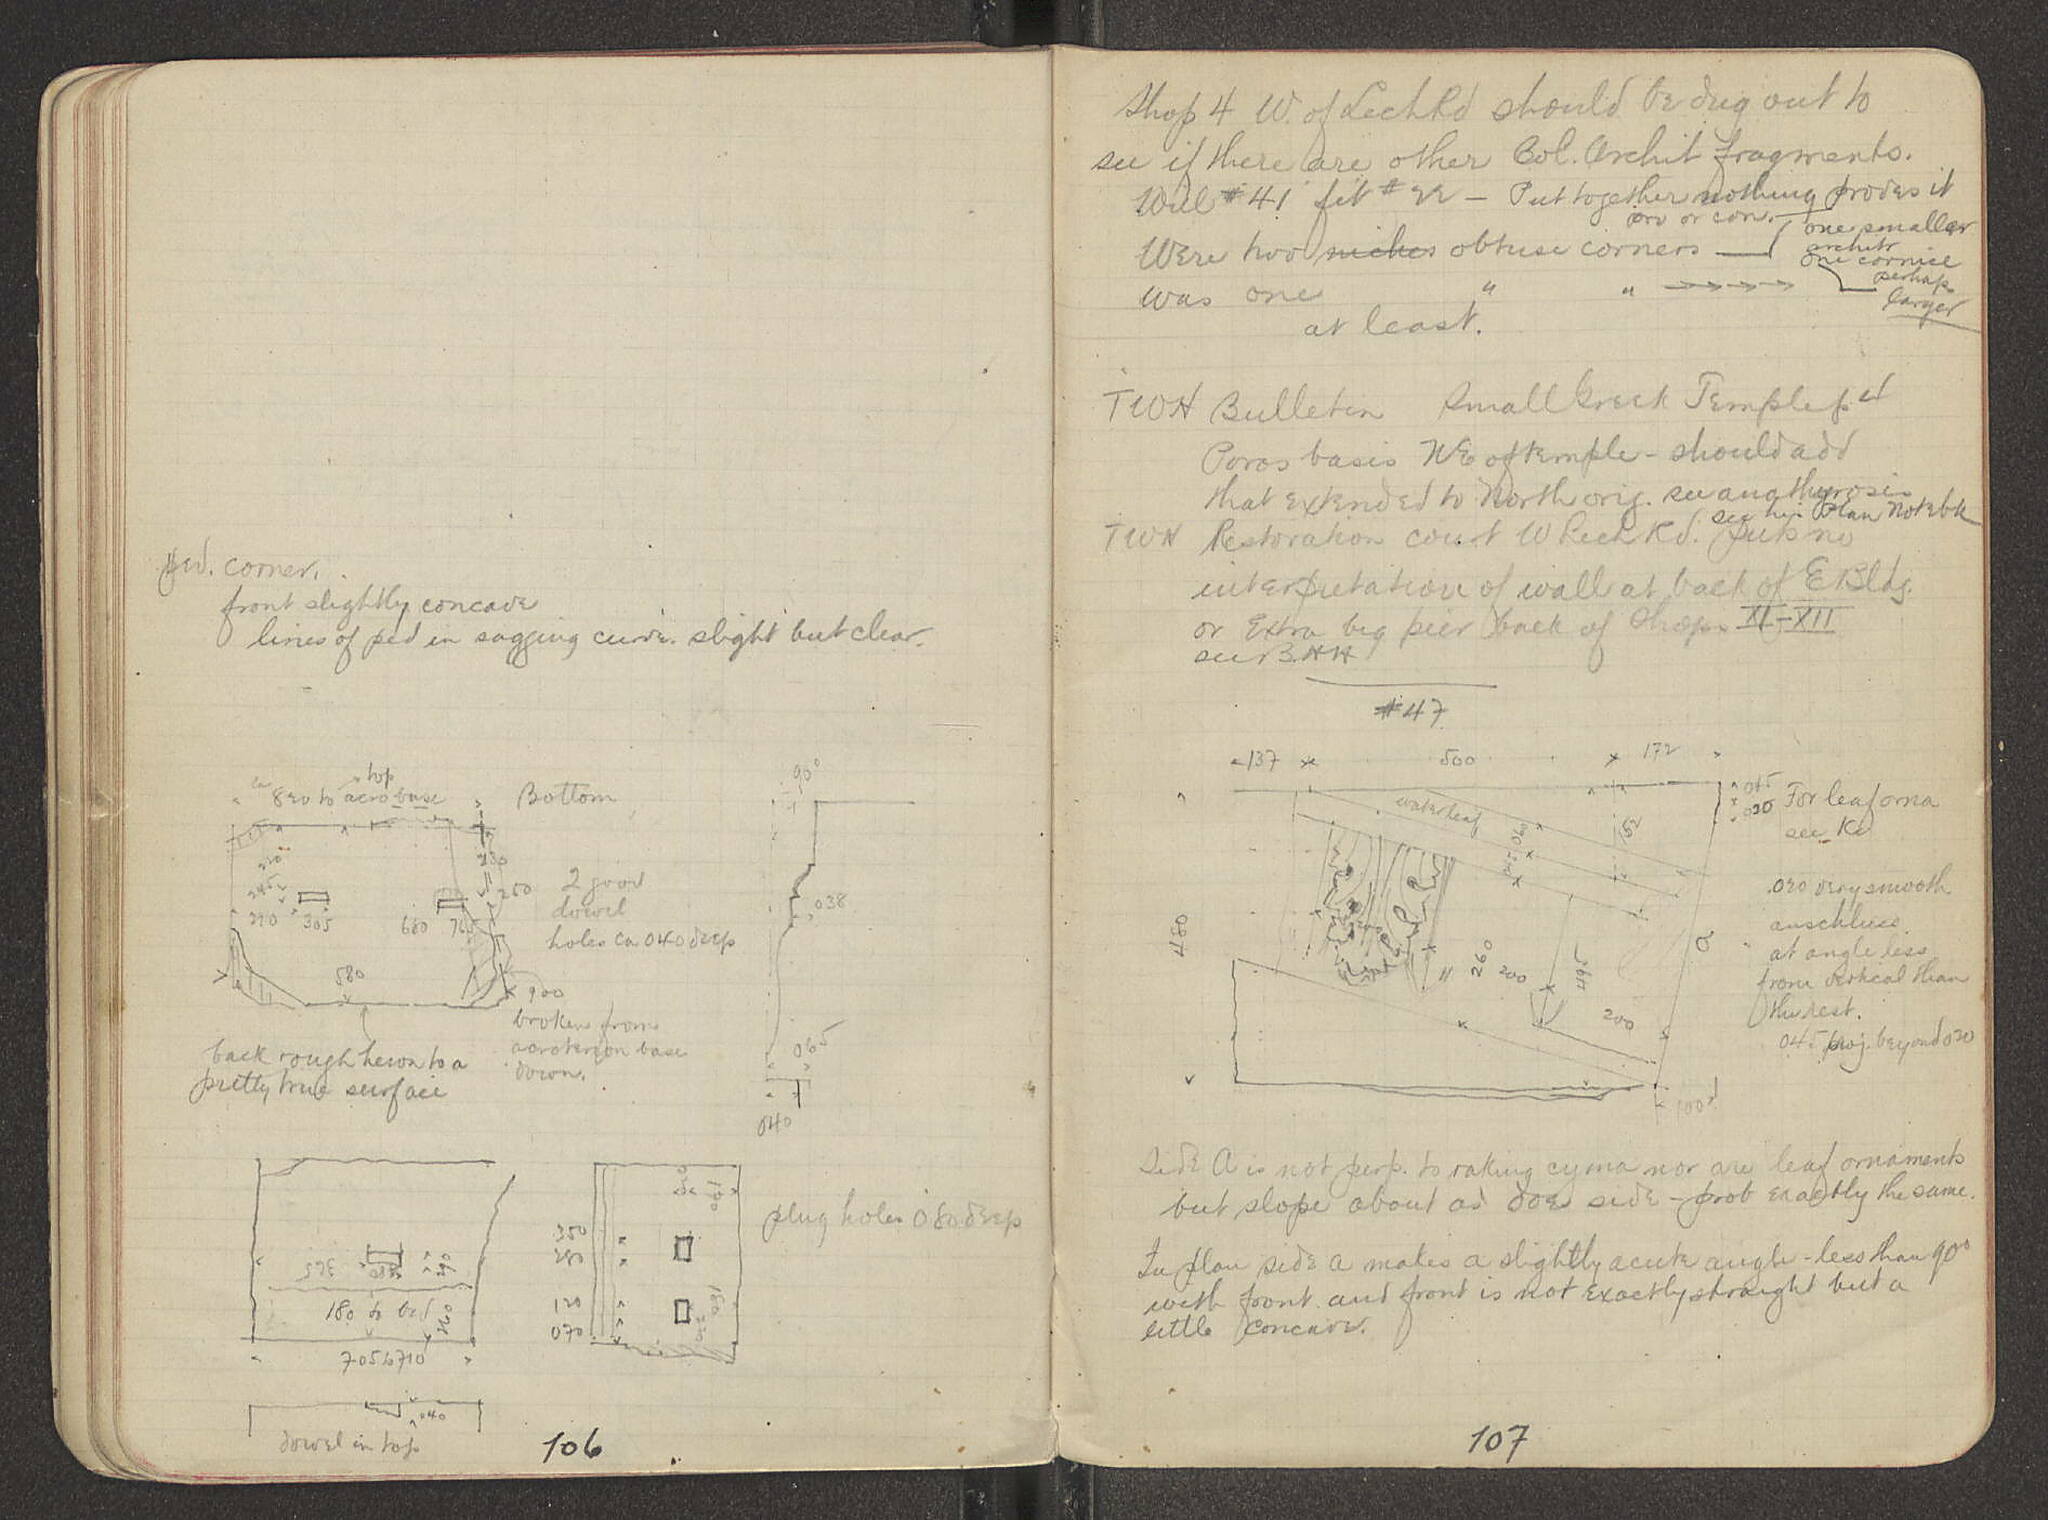 Ped. corner.
front slightly concave
lines of ped in sagging curve. slight but clear.
top
ca 820 to acro base
Bottom
90°
230
250
245
290
305
680
765
2 good
dowel
holes ca 040 deep
038
580
900
broken from
acroterion base
down.
back rough hewn to a
pretty true surface
065
040
350
280
120
070
plug holes 080 deep
180 to bed
705 to 710
040
dowel in top
106
Shop 4 W. of Lech Rd should be dug out to
see if there are other Col. Archit fragments.
Will #41 fit #22 – Put together nothing proves it
pro or con.
Were two niches obtuse corners
one smaller
architr
one cornice
perhaps
larger
was one " "
at least.
TWH Bulletin Small Greek Temple
Poros basis NE of temple – should add
that extended to North orig. see anathyrosis
see his Plan Notebk
TWH Restoration court W Lech Rd. puts no
interpretation of wall at back of E Bldg.
or Extra big pier back of Shops XI–XII
see BHH
#47
137
500
172
045
020
For leaf orna
see
waterleaf
060
045
152
480
260
200
a
200
.020 very smooth
anschluss
at angle less
from vertical than
the rest.
045 proj. beyond 020
Side A is not perp. to raking cyma nor are leaf ornaments
but slope about as does side – prob exactly the same.
In plan side a makes a slightly acute angle – less than 90°
with front and front is not exactly straight but a
little concave.
107